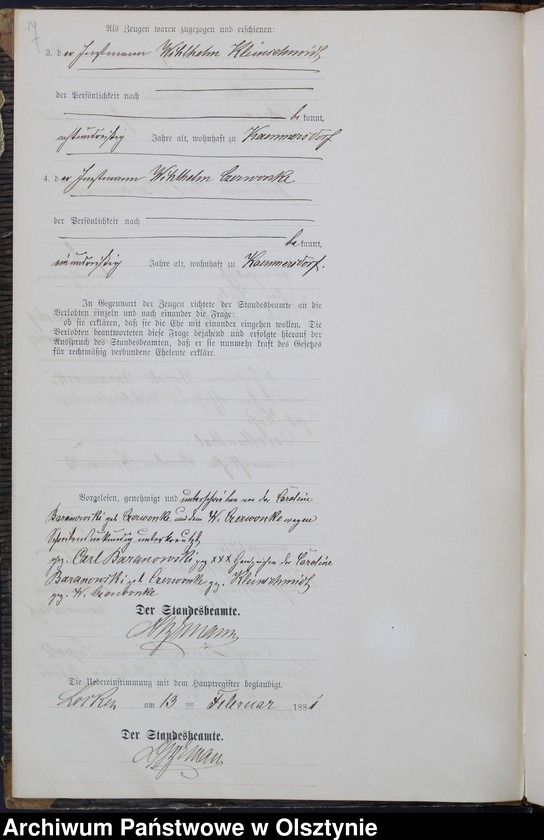 Als Zeugen waren zugezogen und erschienen:
3. der Instmann Wilhelm Kleinschmidt
der Persönlichkeit nach
bekannt,
achtunddreißig Jahre alt, wohnhaft zu Kaemmersdorf
4. der Instmann Wilhelm Czerwonka
der Persönlichkeit nach
bekannt,
Jahre alt, wohnhaft zu Kaemmersdorf.
In Gegenwart der Zeugen richtete der Standesbeamte an die
Verlobten einzeln und nach einander die Frage:
ob sie erklären, daß sie die Ehe mit einander eingehen wollen. Die
Verlobten beantworteten diese Frage bejahend und erfolgte hierauf der
Ausspruch des Standesbeamten, daß er sie nunmehr kraft des Gesetzes
für rechtmäßig verbundene Eheleute erkläre.
Vorgelesen, genehmigt und unterschrieben von der Caroline
Baranowski geb Czerwonke und dem W. Czerwonke wegen
Schreibensunkundig unterkreuzt
gez. Carl Baranowski gez XXX Handzeichen der Caroline
Baranowski geb Czerwonke gz. Kleinschmidt
gez. W.
Der Standesbeamte.
Die Uebereinstimmung mit dem Hauptregister beglaubigt.
Locken am 13 ten Februar 1881
Der Standesbeamte.
Archiwum Państwowe w Olsztynie